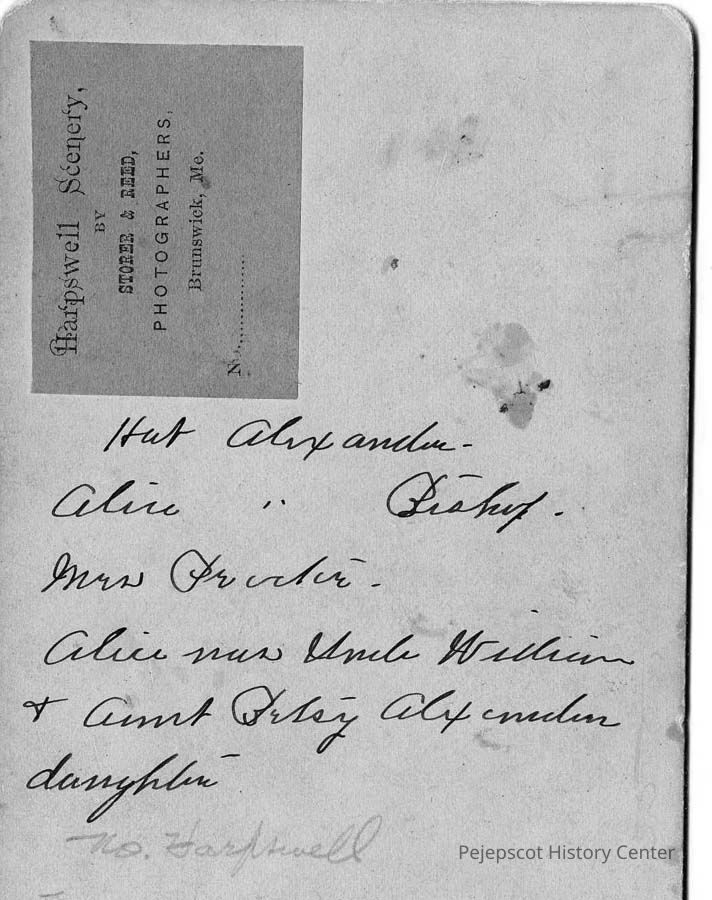 Harpswell Scenery,
BY
STORER & REED,
PHOTOGRAPHERS,
Brunswick, Me.
No..............
Hat Alexander.
Alice " Bishop.
Mrs Proctor.
Alice was Uncle William
& Aunt Betsy Alexander
daughter
No. Harpswell
Pejepscot History Center